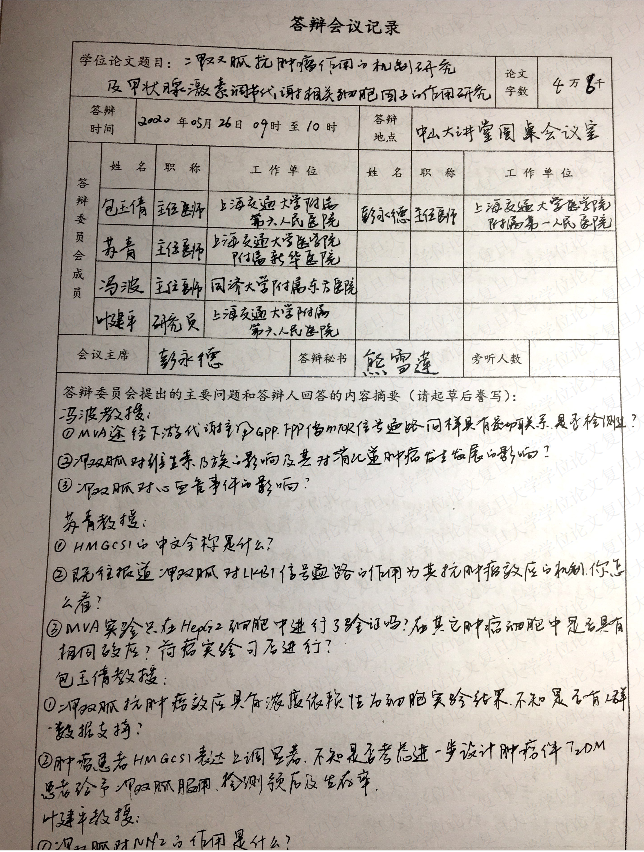 答辩会议记录
学位论文题目：二甲双胍抗肿瘤作用的机制研究
及甲状腺激素调节代谢相关细胞因子的作用研究
论文字数 4万8千
答辩时间 2020年05月26日09时至10时 答辩地点 中山大讲堂圆桌会议室
答辩委员会成员
姓名 职称 工作单位 姓名 职称 工作单位
包玉倩 主任医师 上海交通大学附属第六人民医院 彭永德 主任医师 上海交通大学医学院附属第一人民医院
苏青 主任医师 上海交通大学医学院附属新华医院
冯波 主任医师 同济大学附属东方医院
叶建平 研究员 上海交通大学附属第六人民医院
会议主席 彭永德 答辩秘书 熊雪莲 旁听人数
答辩委员会提出的主要问题和答辩人回答的内容摘要（请起草后誊写）：
冯波教授：
①MVA途径下游代谢主要GPP.FPP信mTOR信号通路同样具有密切联系.是否检测过？
②二甲双胍对维生素B族的影响及其对消化道肿瘤发生发展的影响？
③二甲双胍对心血管事件的影响？
苏青教授：
①HMGCS1的中文全称是什么？
②既往报道二甲双胍对LKB1信号通路的作用为其抗肿瘤效应的机制.你怎
么看？
③MVA实验只在HepG2细胞中进行了验证吗？在其它肿瘤细胞中是否具有
相同效应？荷瘤实验可否进行？
包玉倩教授：
①二甲双胍抗肿瘤效应具有浓度依赖性为细胞实验结果.不知是否有人群
数据支持？
②肿瘤患者HMGCS1表达上调显著.不知是否考虑进一步设计肿瘤伴T2DM
患者给予二甲双胍服用.检测预后及生存率.
叶建平教授：
①二甲双胍对Nrf2的作用是什么？